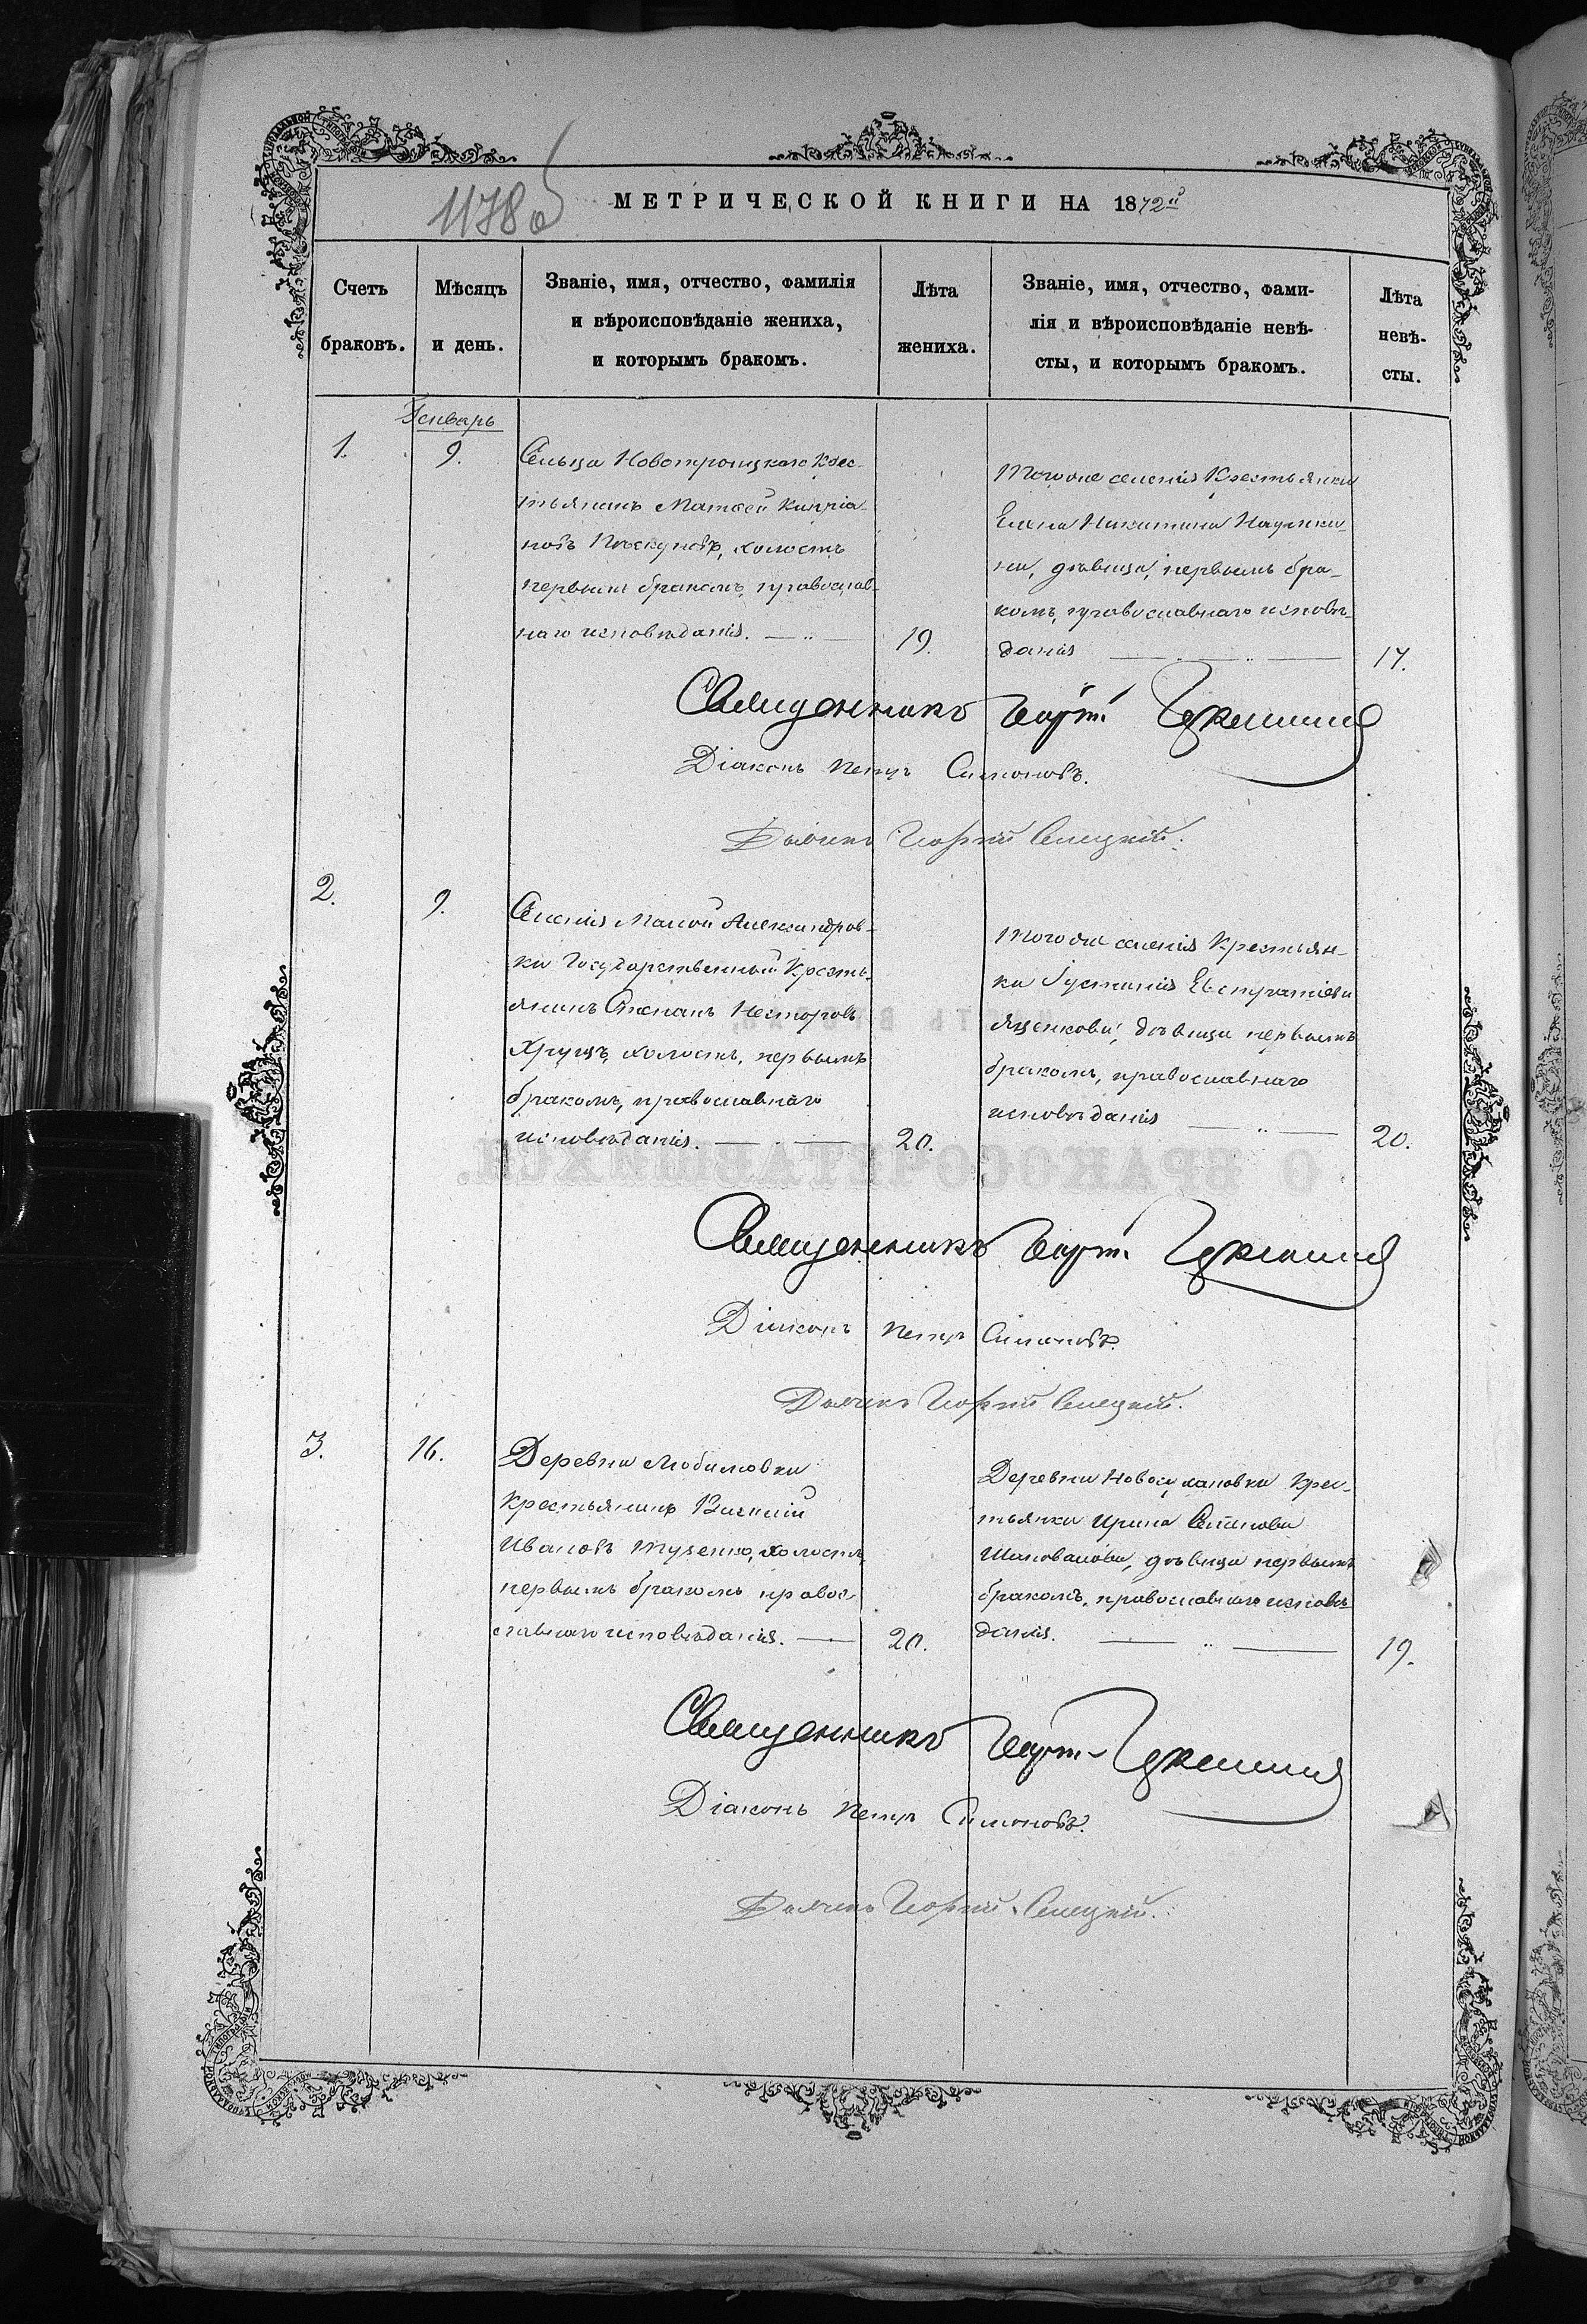 1178 об
МЕТРИЧЕСКОЙ КНИГИ НА 1872й
Счетъ браковъ.
Мѣсяцъ и день.
Званіе, имя, отчество, фамилія
и вѣроисповѣданіе жениха,
и которымъ бракомъ.
Лѣта жениха.
Званіе, имя, отчество, фами-
лія и вѣроисповѣданіе невѣ-
сты, и которымъ бракомъ.
Лѣта
невѣ-
сты.
Генварь
1.
9.
Сельца Новотроицкаго Крес-
тьянинъ Матѳей Кипріа-
новъ Пискуновъ, холостъ
первымъ бракомъ, православ-
наго исповѣданія.
19.
Того же селенія Крестьянка
Елена Никитина
на, дѣвица, первымъ бра-
комъ, православнаго исповѣ-
данія
17.
Священникъ
Діаконъ Петръ Симоновъ.
Дьячекъ Георгій Селецкій.
2.
9.
Селенія Малой Александров-
ки Государственный Кресть-
янинъ Стефанъ Несторовъ
Хрущъ, холостъ, первымъ
бракомъ, православнаго
исповѣданія.
20.
Того же селенія Крестьян-
ка Іустинія Евстратіева
Яценкова, дѣвица первымъ
бракомъ, православнаго
исповѣданія
20.
Священникъ
Діаконъ Петръ Симоновъ.
Дьячекъ Георгій Селецкій.
3.
16.
Деревни Любимовки
Крестьянинъ
Ивановъ Тученко, холостъ,
первымъ бракомъ правос-
лавнаго исповѣданія.
20.
Деревни Крес-
тьянка Ирина
Шаповалова, дѣвица первымъ
бракомъ, православнаго исповѣ-
данія.
19.
Священникъ
Діаконъ Петръ Симоновъ.
Дьячекъ Георгій Селецкій.